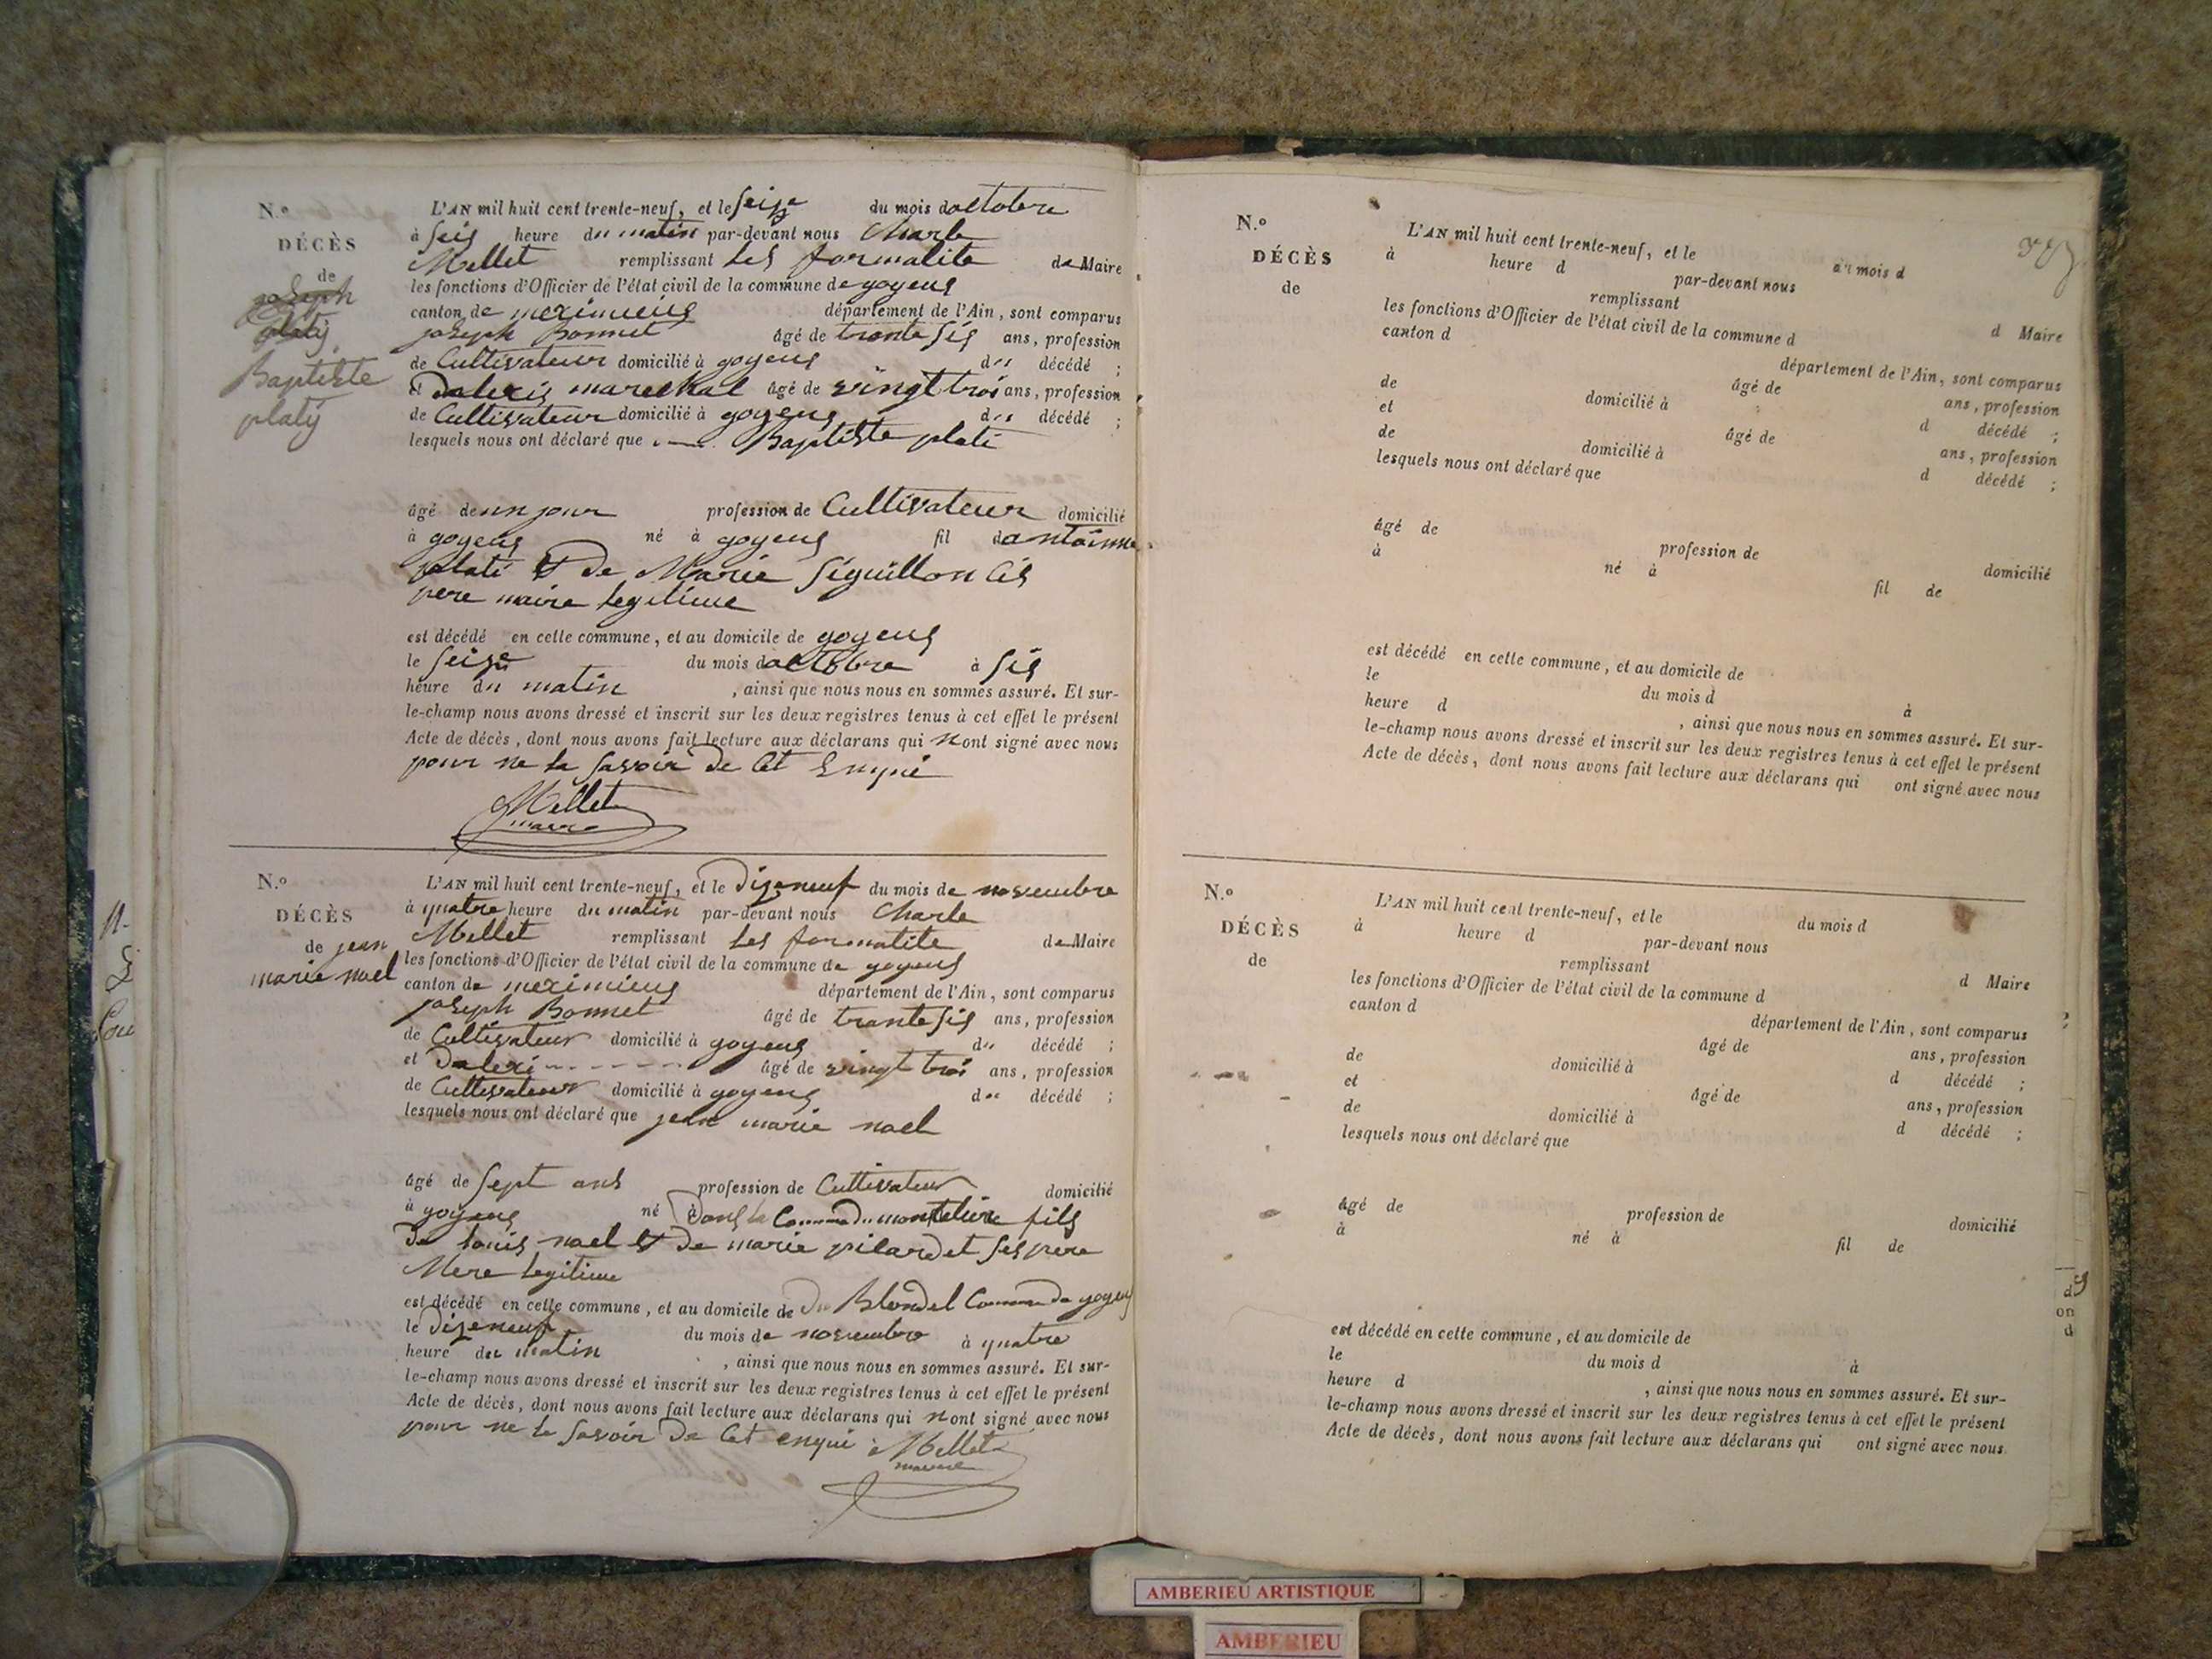 N.o
DÉCÈS
de
joseph
platy
Baptiste
platy
L'AN mil huit cent trente-neuf, et le seize du mois doctobre
à seis heure du matin par-devant nous Charle
Mellet remplissant les formalite de Maire
les fonctions d'Officier de l'état civil de la commune de goyeus
canton de meximieus département de l'Ain, sont comparus
joseph Bonnet âgé de trante sis ans, profession
de Cultivateur domicilié à goyeus du décédé ;
et dalexis marechal âgé de vingt trois ans, profession
de Cultivateur domicilié à goyeus du décédé ;
lesquels nous ont déclaré que Baptiste plati
âgé de un jour profession de Cultivateur domicilié
à goyeus né à goyeus fil dantoinne
plati & de Marie Siguillon Cis
pere maire legitime
est décédé en cette commune, et au domicile de goyeus
le seize du mois doctobre à sis
heure du matin , ainsi que nous nous en sommes assuré. Et sur-
le-champ nous avons dressé et inscrit sur les deux registres tenus à cet effet le présent
Acte de décès, dont nous avons fait lecture aux déclarans qui nont signé avec nous
pour ne le savoir de Cet enqui
Mellet
maire
N.o
DÉCÈS
de jean
marie noel
L'AN mil huit cent trente-neuf, et le dizeneuf du mois de novembre
à quatre heure du matin par-devant nous Charle
Mellet remplissant les formalite de Maire
les fonctions d'Officier de l'état civil de la commune de goyeus
canton de meximieus département de l'Ain, sont comparus
joseph Bonnet âgé de trante sis ans, profession
de Cultivateur domicilié à goyeus du décédé ;
et dalexi âgé de vingt trois ans, profession
de Cultivateur domicilié à goyeus du décédé ;
lesquels nous ont déclaré que jean marie noel
âgé de sept ans profession de Cultivateur domicilié
à goyeus né à dans la Commune du montelivre fils
de louis noel & de marie pilardet ses pere
Mere legitime
est décédé en cette commune, et au domicile de du Blondel Commune de goyeus
le dizeneuf du mois de novembre à quatre
heure du matin , ainsi que nous nous en sommes assuré. Et sur-
le-champ nous avons dressé et inscrit sur les deux registres tenus à cet effet le présent
Acte de décès, dont nous avons fait lecture aux déclarans qui nont signé avec nous
pour ne le savoir de Cet enqui Mellet
maire
N.o
DÉCÈS
de
L'AN mil huit cent trente-neuf, et le du mois d
à heure d par-devant nous
remplissant d Maire
les fonctions d'Officier de l'état civil de la commune d
canton d département de l'Ain, sont comparus
âgé de ans, profession
de domicilié à d décédé ;
et âgé de ans, profession
de domicilié à d décédé ;
lesquels nous ont déclaré que
âgé de profession de domicilié
à né à fil de
est décédé en cette commune, et au domicile de
le du mois d à
heure d , ainsi que nous nous en sommes assuré. Et sur-
le-champ nous avons dressé et inscrit sur les deux registres tenus à cet effet le présent
Acte de décès, dont nous avons fait lecture aux déclarans qui ont signé avec nous
N.o
DÉCÈS
de
L'AN mil huit cent trente-neuf, et le du mois d
à heure d par-devant nous
remplissant d Maire
les fonctions d'Officier de l'état civil de la commune d
canton d département de l'Ain, sont comparus
âgé de ans, profession
de domicilié à d décédé ;
et âgé de ans, profession
de domicilié à d décédé ;
lesquels nous ont déclaré que
âgé de profession de domicilié
à né à fil de
est décédé en cette commune, et au domicile de
le du mois d à
heure d , ainsi que nous nous en sommes assuré. Et sur-
le-champ nous avons dressé et inscrit sur les deux registres tenus à cet effet le présent
Acte de décès, dont nous avons fait lecture aux déclarans qui ont signé avec nous
AMBERIEU ARTISTIQUE
AMBERIEU